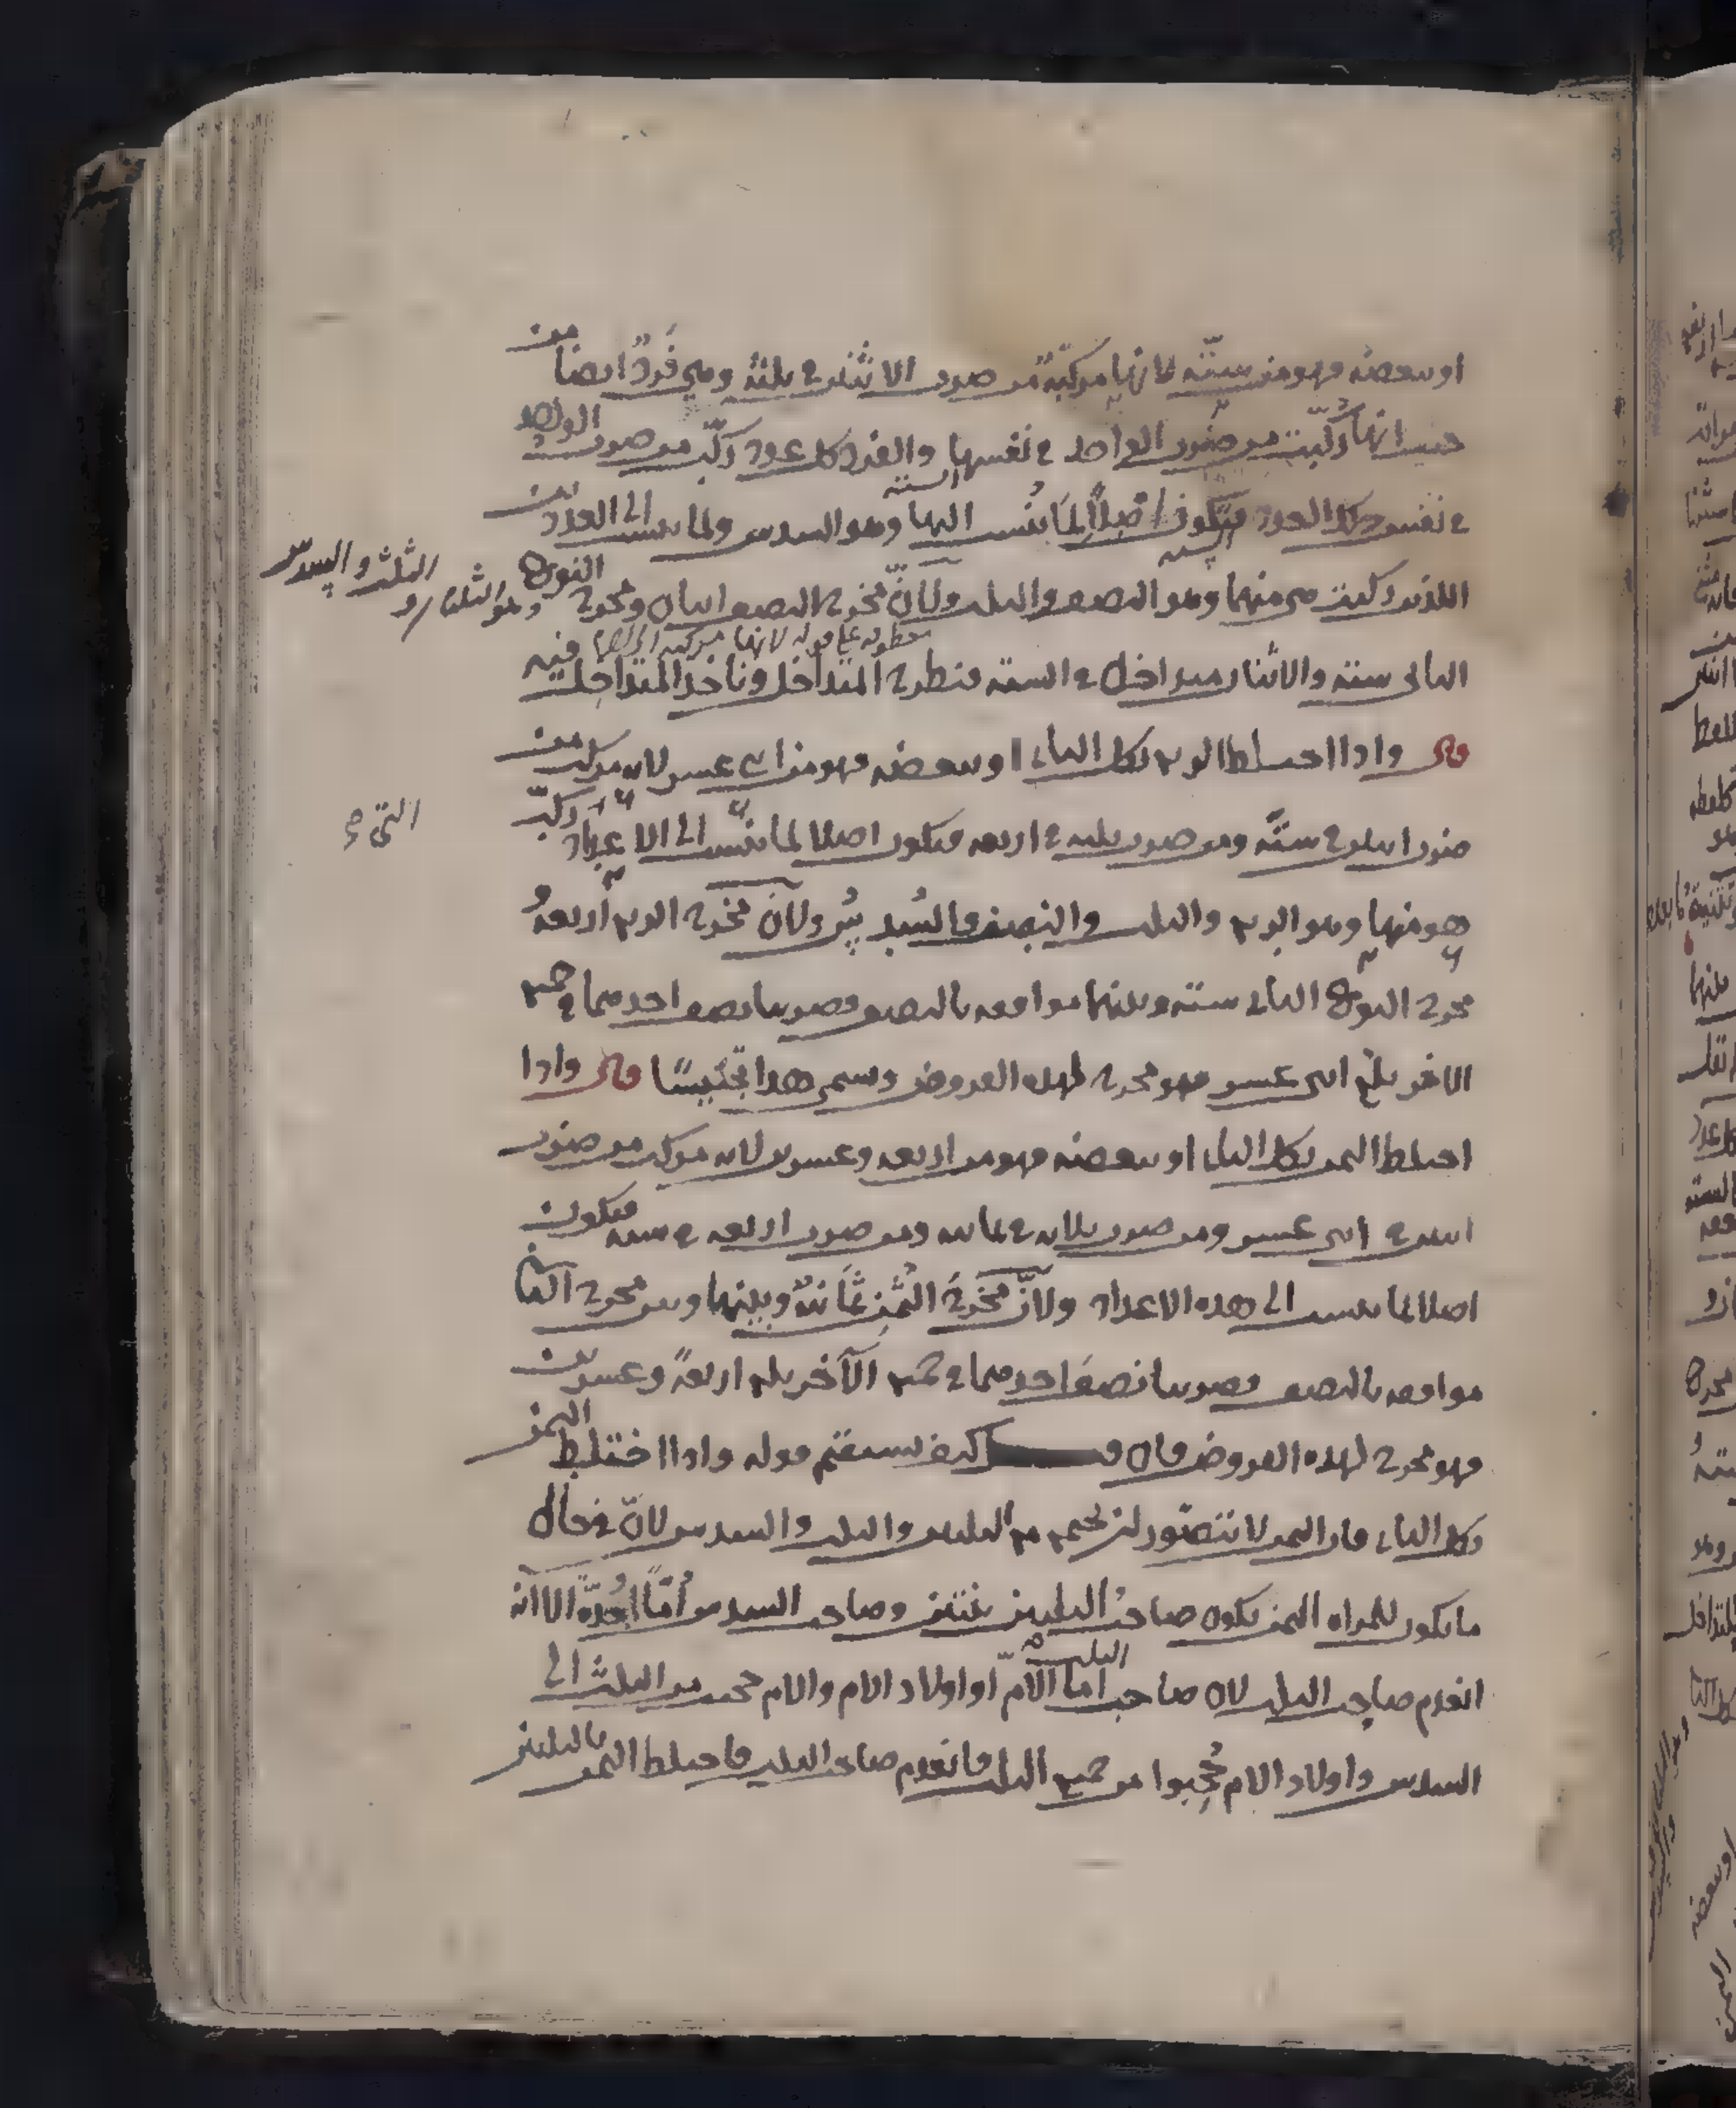 او ببعضه فهو من ستة لانها مركبة من ضرب الاثنين في ثلثة وهي فرد ايضا من
حيث انها ركبت من ضرب الواحد في نفسها والفرد كل عدد ركب من ضرب الواحد
في نفس ذلك العدد فتكون اصلا لما ينسب اليها وهو السدس ولما ينسب الى العددين
اللذين ركبت هي منهما وهو النصف والثلث ولان مخرج النصف اثنان ومخرج النوع
الثاني ستة والاثنان متداخل في الستة فنطرح المتداخل وناخذ المتداخل فيه
قال واذا اختلط الربع بكل الثاني او ببعضه فهو من اثني عشر لانه مركب من
ضرب اثنين في ستة ومن ضرب ثلثة في اربعة فيكون اصلا لما ينسب الى الاعداد التي ركب
هو منها وهو الربع والثلث والنصف والسدس ولان مخرج الربع اربعة
مخرج النوع الثاني ستة وبينهما موافقة بالنصف فضربنا نصف احدهما في جميع
الاخر بلغ اثني عشر فهو مخرج لهذه الفروض وسمي هذا تجنيسا قال واذا
اختلط الثمن بكل الثاني او ببعضه فهو من اربعة وعشرين لانه مركب من ضرب
اثنين في اثني عشر ومن ضرب ثلاثة في ثمانية ومن ضرب اربعة في ستة فيكون
اصلا لما ينسب الى هذه الاعداد ولان مخرج الثمن ثمانية وبينها وبين مخرج الثاني
موافقة بالنصف فضربنا نصف احدهما في جميع الآخر بلغ اربعة وعشرين
فهو مخرج لهذه الفروض فان قيل كيف يستقيم قوله واذا اختلط الثمن
بكل الثاني فان الثمن لا يتصور ان يجتمع مع الثلثين والثلث والسدس لان في حال
ما يكون للمراة الثمن يكون صاحب الثلثين بنتين وصاحب السدس اما او جدة الا انه
انعدم صاحب الثلث لان صاحب الثلث اما الام او اولاد الام والام تحجب من الثلث الى
السدس واولاد الام حجبوا من جميع الثلث فانعدم صاحب الثلث فاختلط الثمن بالثلثين
وهو الثلثان و
الثلث والسدس
معطوف على قوله لانها مركبة
التي صح
الستة